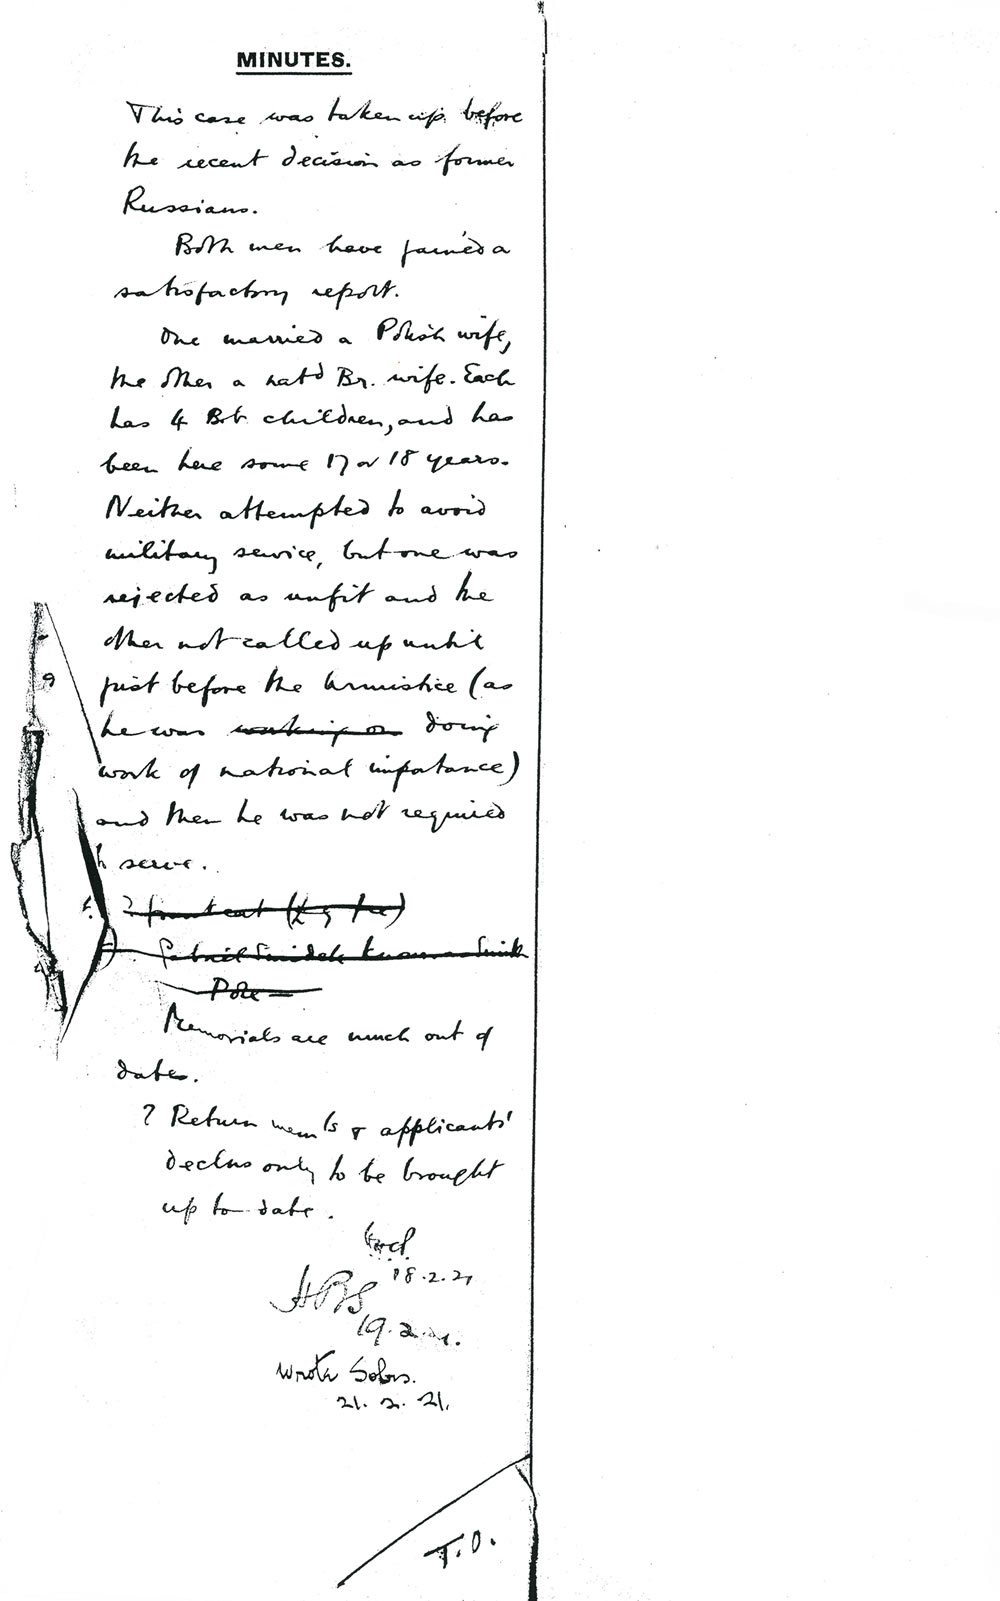 MINUTES.
This case was taken up before
the recent decision as former
Russians.
Both men have gained a
satisfactory report.
One married a Polish wife,
the other a nat'd Br. wife. Each
has 4 Br. children, and has
been here some 17 or 18 years.
Neither attempted to avoid
military service, but one was
rejected as unfit and the
other not called up until
just before the Armistice (as
he was working on doing
work of national importance)
and then he was not required
to serve.
? grant cert (£5 fee)
Gabriel known as Smith
Pole
Memorials are much out of
date.
? Return mem'ls & applicants'
declns only to be brought
up to date.
18.2.21
HBS
19.2.21.
Wrote Solrs.
21. 2. 21.
T.O.